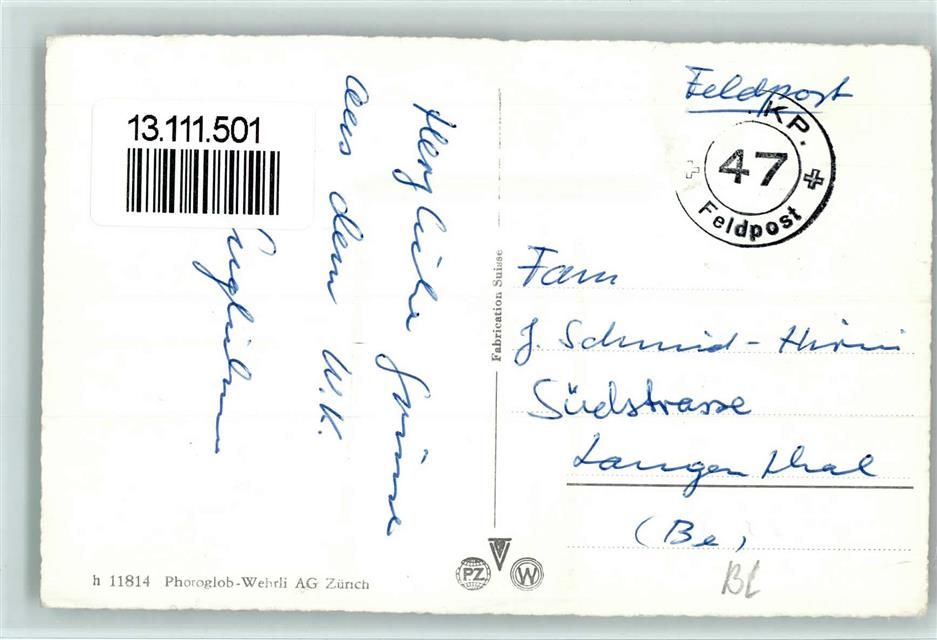 13.111.501
Herzliche Grüsse
aus dem W.K.
Fabrication Suisse
h 11814 Photoglob-Wehrli AG Zürich
PZ
W
Feldpost
KP.
47
Feldpost
Fam
J. Schmid-Hirni
Südstrasse
Langenthal
(Be)
BE